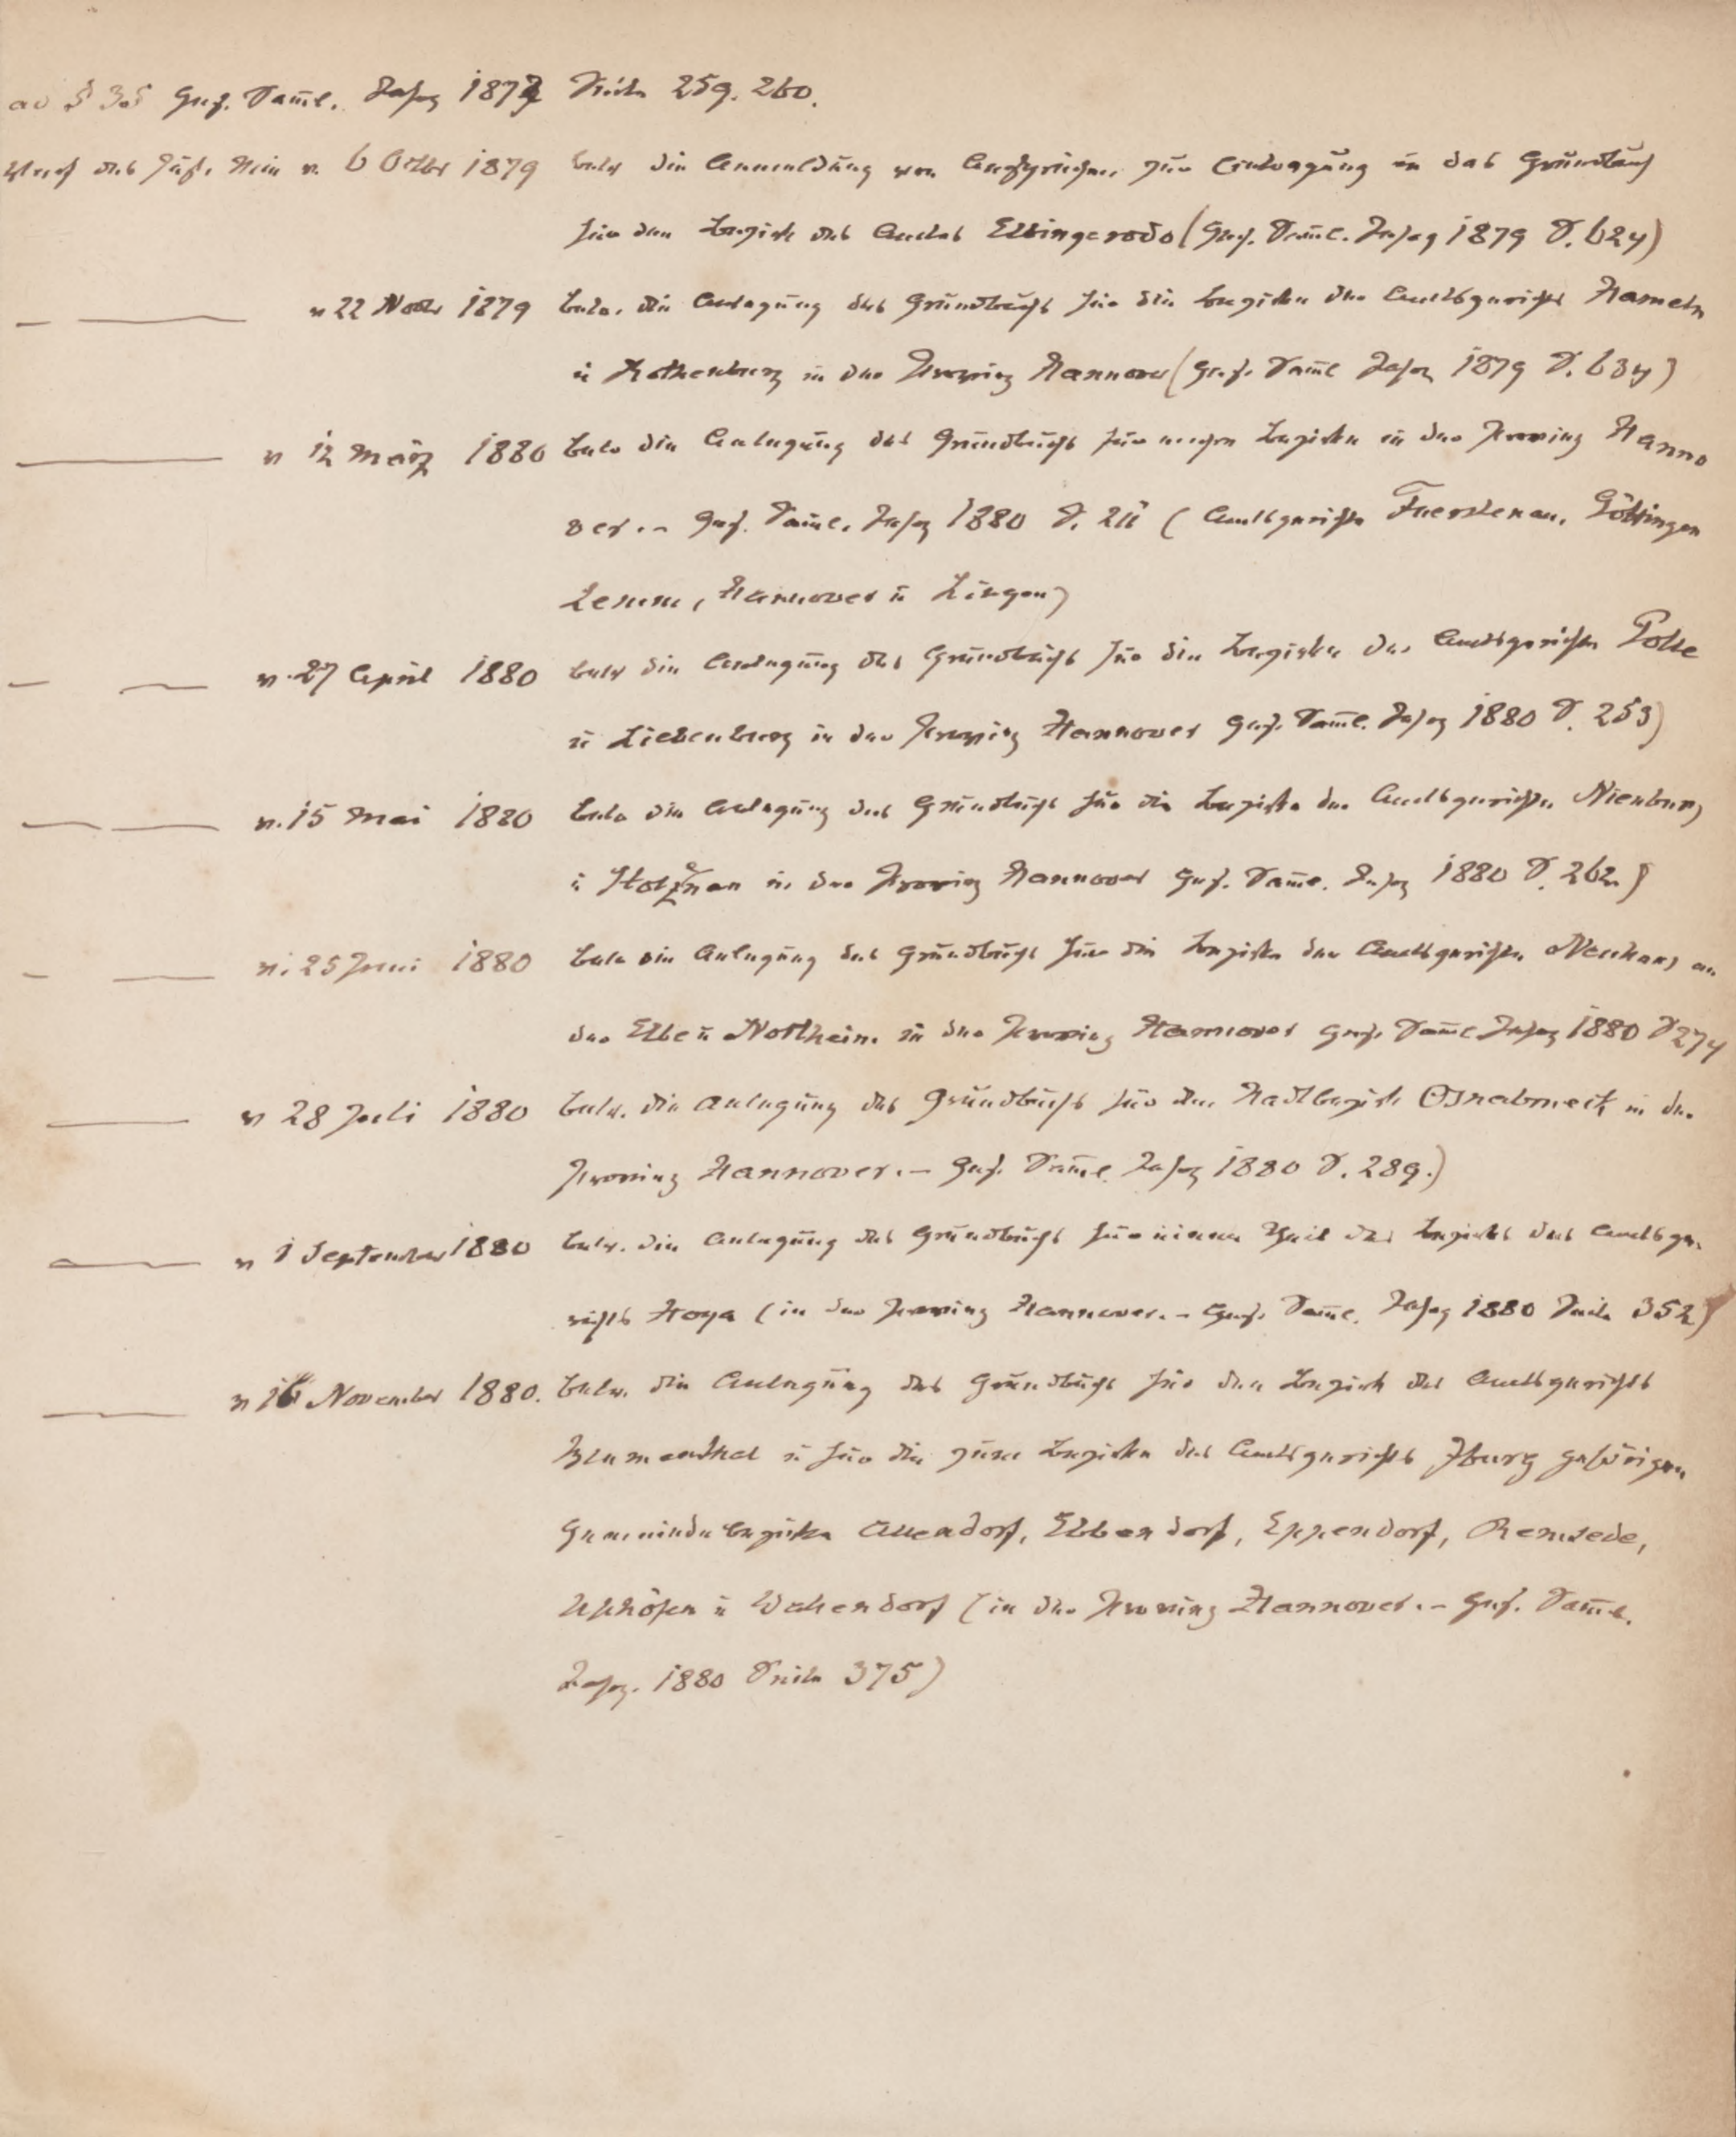 ad § 35 Ges. Samml. Jahrg 1879 Seite 259. 260.
Verf des Just. Min v. 6 Octbr 1879 betr die Anmeldung von Ansprüchen zur Eintragung in das Grundbuch
für den Bezirk des Amtes Elbingerode (Ges. Samml. Jahrg 1879 S. 624)
— —— v 22 Novbr 1879 betr. die Anlegung des Grundbuchs für die Bezirke der Amtsgerichte Hameln
u Rothenburg in der Provinz Hannover (Ges. Samml Jahrg 1879 S. 634)
—— v 12 März 1880 betr die Anlegung des Grundbuchs für einige Bezirke in der Provinz Hanno
ver. – Ges. Samml. Jahrg 1880 S. 211 (Amtsgerichte Fuerstenau, Göttingen
Hannover u Lingen)
— — v. 27 April 1880 betr die Anlegung des Grundbuchs für die Bezirke der Amtsgerichte Polle
u Liebenburg in der Provinz Hannover Ges. Samml. Jahrg 1880 S. 253)
— — v. 15 Mai 1880 betr die Anlegung des Grundbuchs für die Bezirke der Amtsgerichte Nienburg
u in der Provinz Hannover Ges. Samml. Jahrg 1880 S. 262)
— — v. 25 Juni 1880 betr die Anlegung des Grundbuchs für die Bezirke der Amtsgerichte Neuhaus an
der Elbe u Northeim in der Provinz Hannover Ges. Samml Jahrg 1880 S 274
—— v 28 Juli 1880 betr. die Anlegung des Grundbuchs für den Stadtbezirk Osnabrueck in der
Provinz Hannover. – Ges. Samml. Jahrg 1880 S. 289.)
—— v 1 September 1880 betr. die Anlegung des Grundbuchs für einen Theil des Bezirks des Amtsge-
richts Hoya (in der Provinz Hannover. – Ges. Samml. Jahrg 1880 Seite 352)
—— v 16 November 1880. betr. die Anlegung des Grundbuchs für den Bezirk des Amtsgerichts
Blumenthal u für die zum Bezirke des Amtsgerichts Iburg gehörigen
Gemeindebezirke Allendorf, Ebbendorf, Eppendorf, Remsede,
Uphöfen u Wellendorf (in der Provinz Hannover. – Ges. Samml.
Jahrg. 1880 Seite 375)